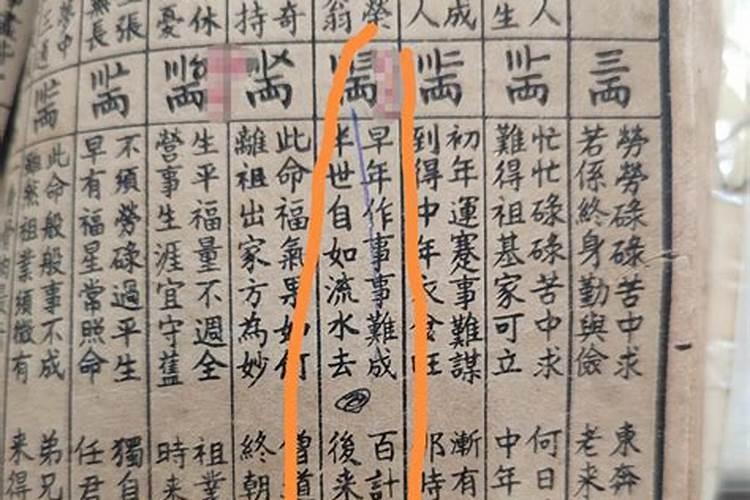 勞勞碌碌苦中求
東奔
若係終身勤與儉
老來
忙忙碌碌苦中求
何日
難得祖基家可立
中年
初年運蹇事難謀
漸有
到得中年衣食旺
那時
早年作事事難成
百計
半世自如流水去
後來
此命福氣果如何
僧道
離祖出家方為妙
終朝
生平福量不週全
祖業
營事生涯宜守舊
時來
不須勞碌過平生
獨自
早有福星常照命
任君
此命般般事不成
弟兄
雖然祖業須微有
來得